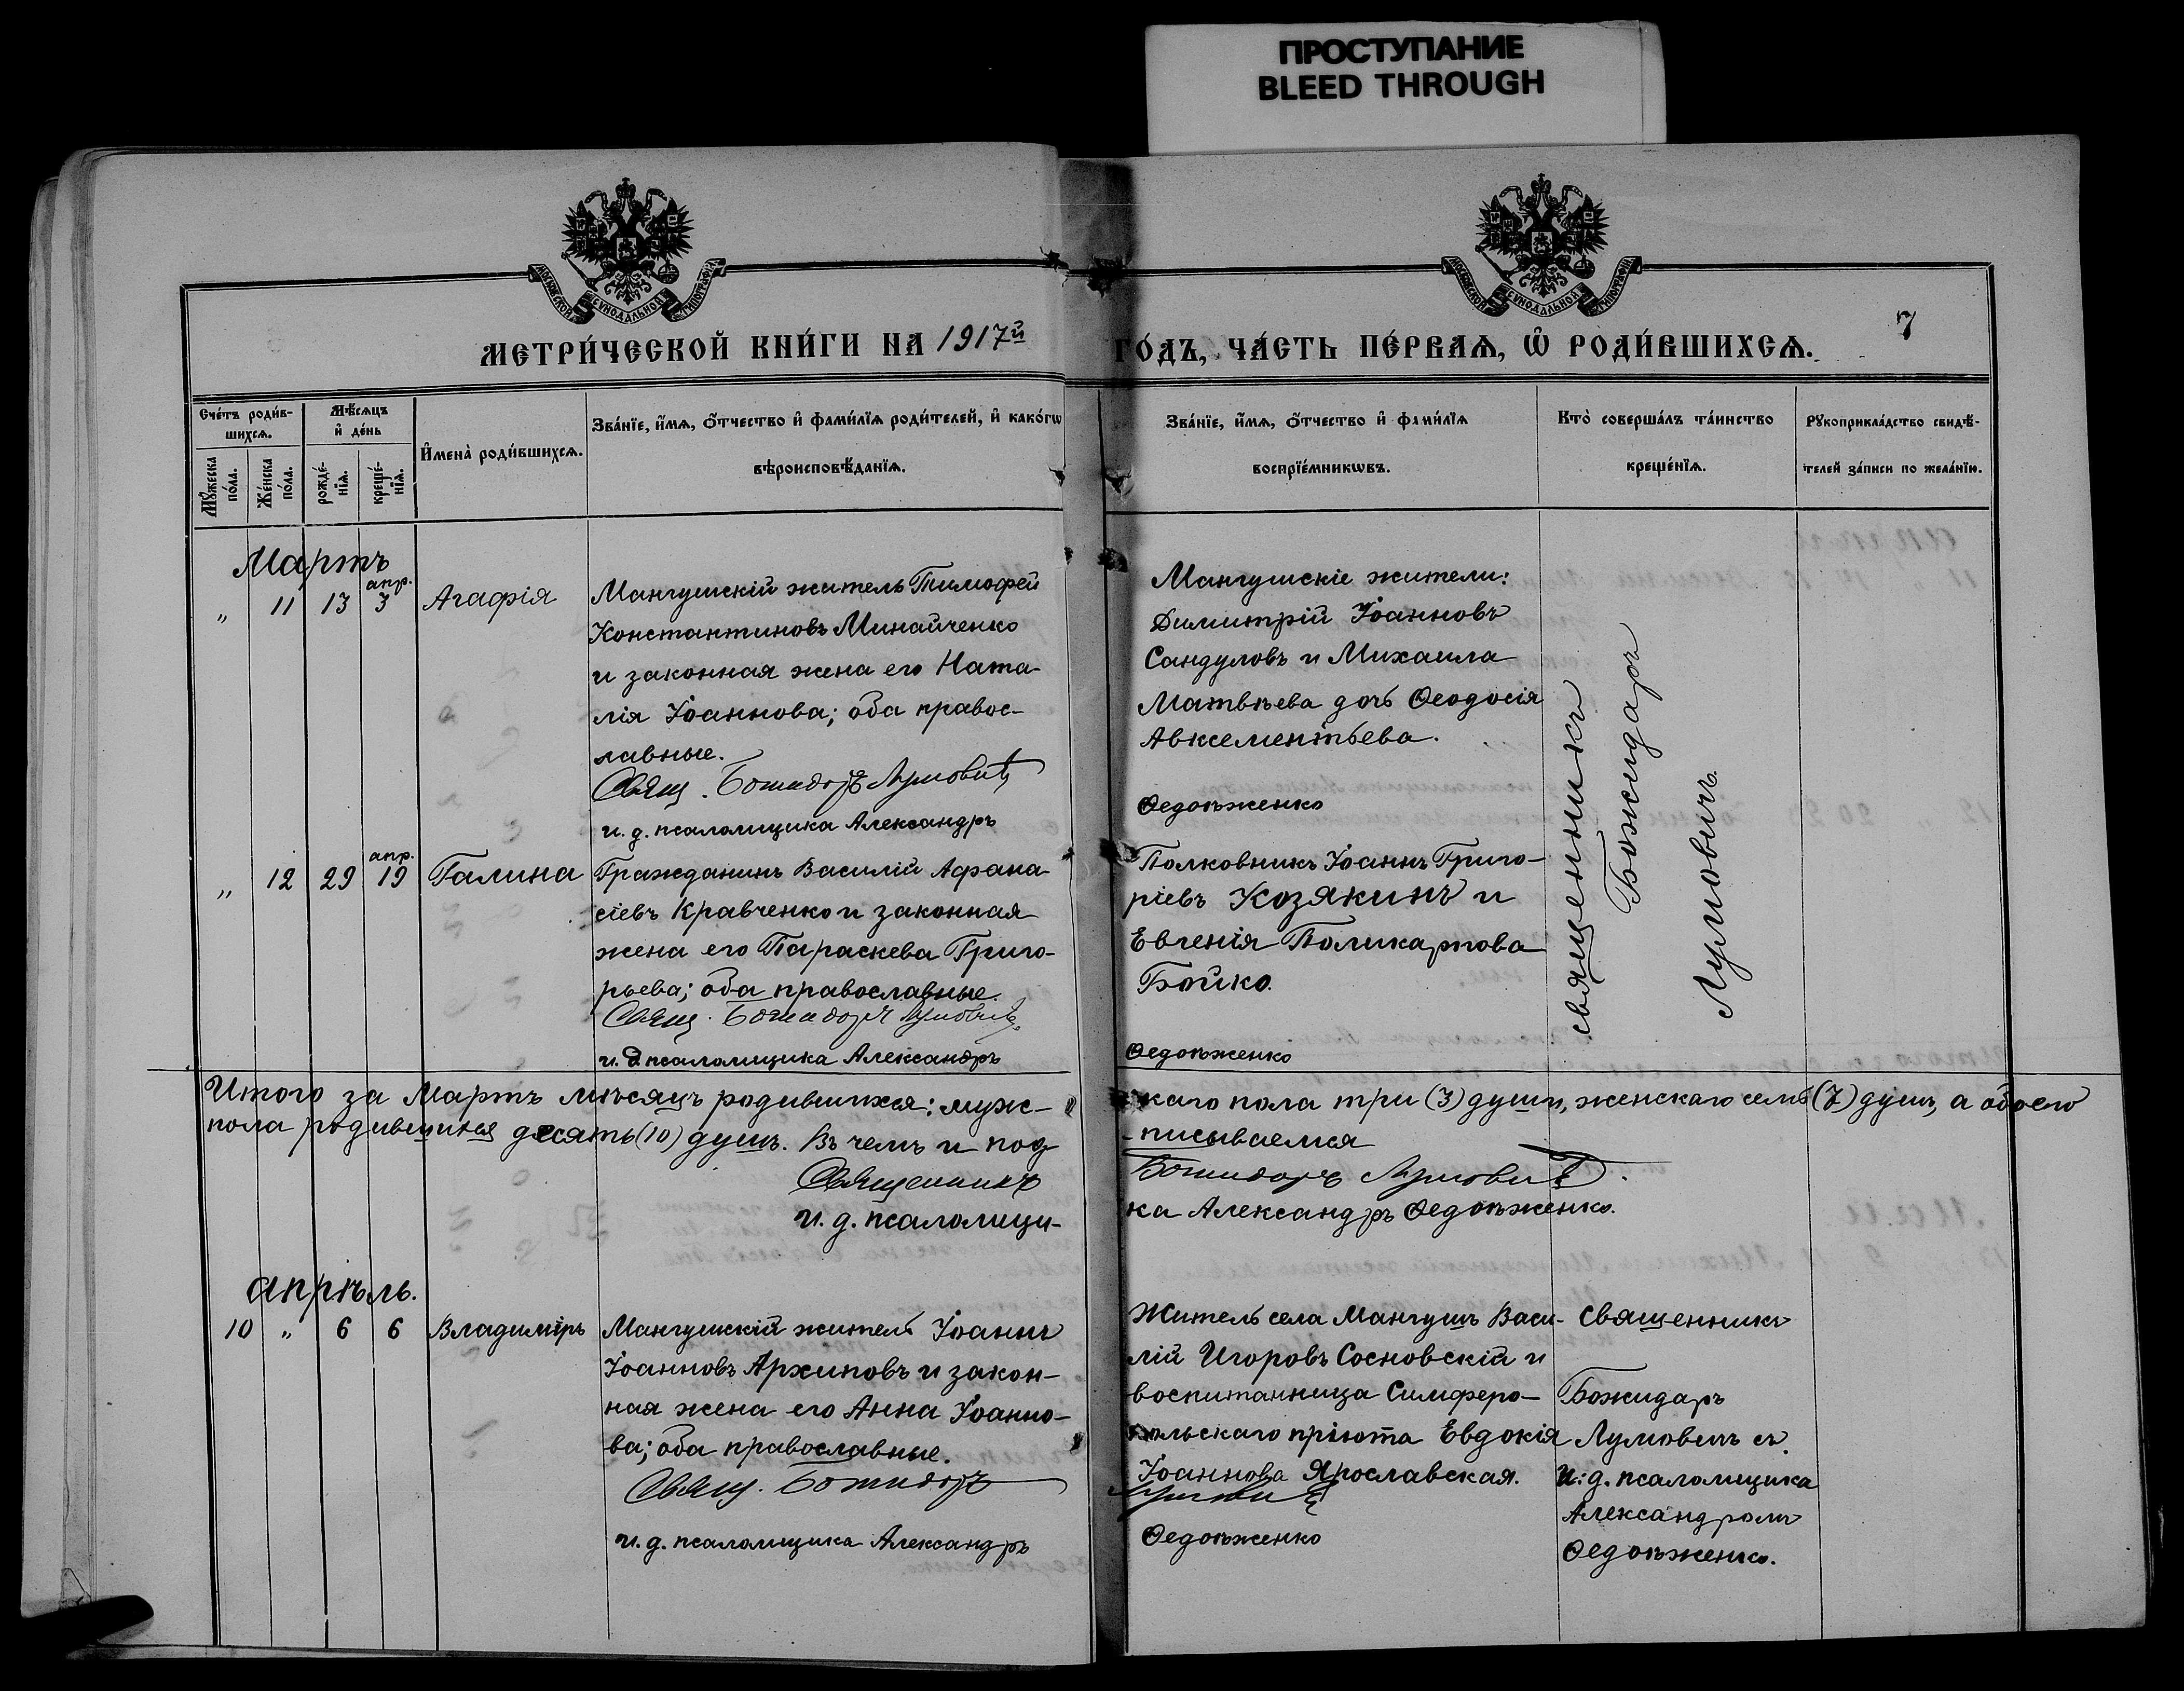 ПРОСТУПАНИЕ
BLEED THROUGH
МОСКОВСКОЙ СѴНОДАЛЬНОЙ ТИПОГРАФІИ
МОСКОВСКОЙ СѴНОДАЛЬНОЙ ТИПОГРАФІИ
7
МЕТРИ́ЧЕСКОЙ КНИ́ГИ НА 1917й ГО́ДЪ, ЧА́СТЬ ПЕ́РВАѦ, Ѡ РОДИ́ВШИХСѦ.
Сче́тъ роди́в-
шихсѧ.
Мꙋ́жеска
по́ла.
Же́нска
по́ла.
Мѣ́сѧцъ
и҆ де́нь
рожде́-
нїѧ.
креще́-
нїѧ.
И҆мена̀ роди́вшихсѧ.
Зва́нїе, и҆́мѧ, ѻ҆́тчество и҆ фами́лїѧ роди́телей, и҆ како́гѡ
вѣроисповѣ́данїѧ.
Зва́нїе, и҆́мѧ, ѻ҆́тчество и҆ фами́лїѧ
воспрїе́мникѡвъ.
Кто̀ соверша́лъ та́инство
креще́нїѧ.
Рꙋкоприкла́дство свидѣ́-
телей за́писи по жела́нїю.
Мартъ
„ 11 13 апр. 3 Агафія
Мангушскій житель Тимофей
Константиновъ Минайченко
и законная жена его Ната-
лія Іоаннова; оба правос-
лавные.
Свящ. Божидаръ Лумовичъ
и. д. псаломщика Александръ
Мангушскіе жители:
Димитрій Іоанновъ
Сандуловъ и Михаила
Матвѣева дочь Ѳеодосія
Авксементьева.
Ѳедоѣженко
священникъ
Божидаръ
Лумовичъ.
„ 12 29 апр. 19 Галина
Гражданинъ Василій Афана-
сіевъ Кравченко и законная
жена его Параскева Григо-
рьева; оба православные.
Свящ. Божидаръ Лумовичъ
и. д. псаломщика Александръ
Полковникъ Іоаннъ Григо-
ріевъ Козякинъ и
Евгенія Поликарпова
Бойко.
Ѳедоѣженко
Итого за Мартъ мѣсяцъ родившихся: муж-каго пола три (3) души, женскаго семь (7) душъ, а обоего
пола родившихся десять (10) душъ. Въ чемъ и под-писываемся
Священникъ Божидаръ Лумовичъ.
И. д. псаломщи-ка Александръ Ѳедоѣженко.
апрѣль.
10 „ 6 6 Владиміръ
Мангушскій житель Іоаннъ
Іоанновъ Архиповъ и закон-
ная жена его Анна Іоанно-
ва; оба православные.
Свящ. Божидаръ Лумовичъ
и. д. псаломщика Александръ
Житель села Мангушъ Васи-
лій Игоровъ Сосновскій и
воспитанница Симферо-
польскаго пріюта Евдокія
Іоаннова Ярославская.
Ѳедоѣженко
священникъ
Божидаръ
Лумовичъ съ
И. д. псаломщика
Александромъ
Ѳедоѣженко.